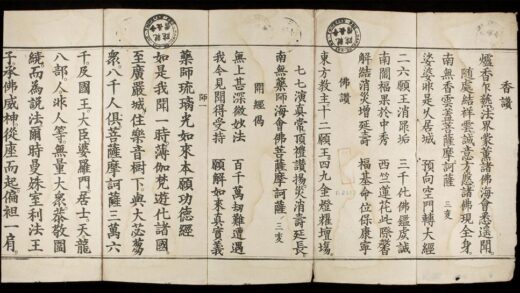 香讚
爐香乍爇法界蒙薰諸佛海會悉遙聞
隨處結祥雲誠意方慇諸佛現全身
南無香雲蓋菩薩摩訶薩 三支
娑婆昨是火居城 預向空門轉大經
二六願王消罪垢 三千化佛鑑虔誠
南閻福果於中秀 西竺蓮花此際馨
解結消災增延壽 福基命位保康寧
佛讚
東方教主十二願王四九金燈耀壇場
七七演真常頂禮讚揚災消壽延長
南無藥師海會佛菩薩摩訶薩 三支
開經偈
無上甚深微妙法 百千萬劫難遭遇
我今見聞得受持 願解如來真實義
師一
藥師琉璃光如來本願功德經
如是我聞一時薄伽梵遊化諸國
至廣嚴城住樂音樹下與大苾芻
衆八千人俱菩薩摩訶薩三萬六
千及國王大臣婆羅門居士天龍
八部人非人等無量大衆恭敬圍
繞而為說法爾時曼殊室利法王
子承佛威神從座而起偏袒一肩